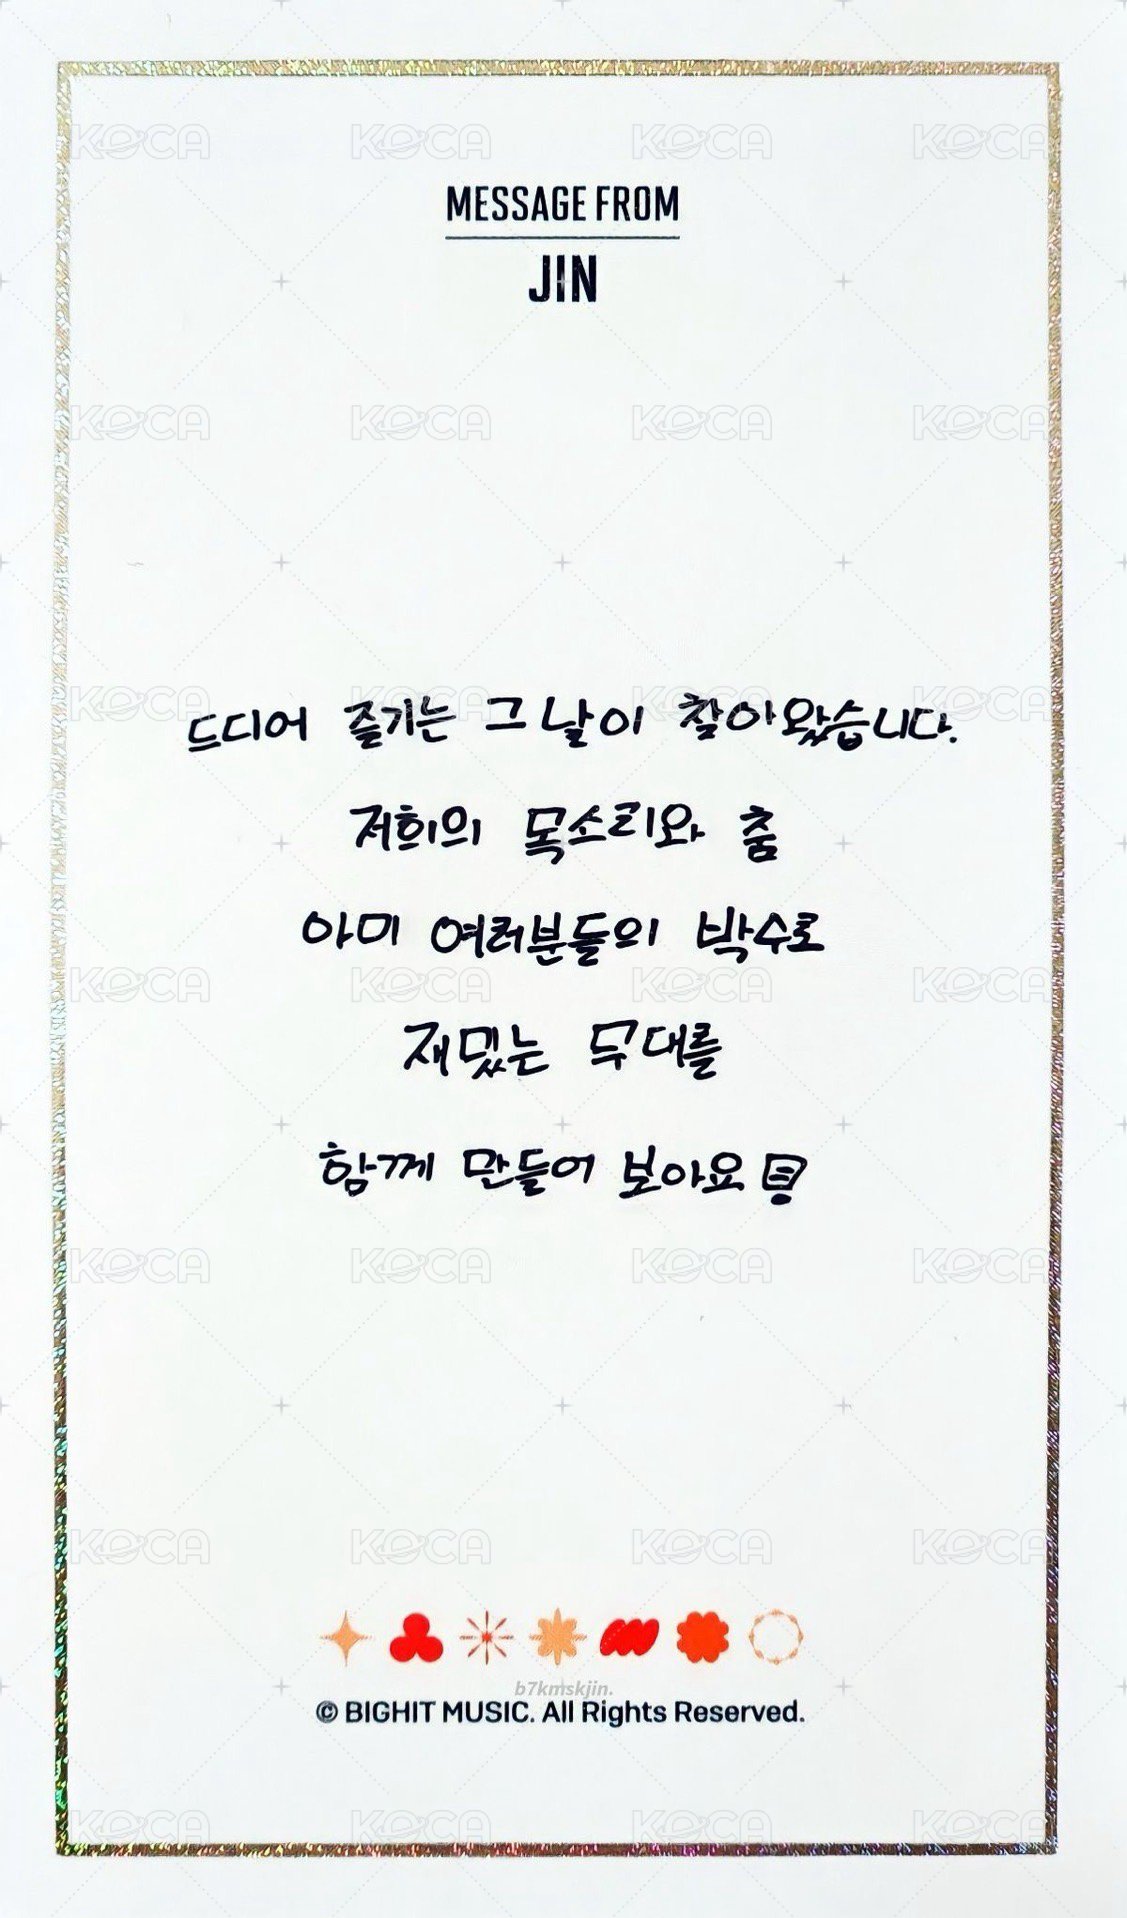 MESSAGE FROM
JIN
드디어 즐기는 그날이 찾아왔습니다.
저희의 목소리와 춤
아미 여러분들의 박수로
재밌는 무대를
함께 만들어 보아요
b7kmskjin.
© BIGHIT MUSIC. All Rights Reserved.
KOCA